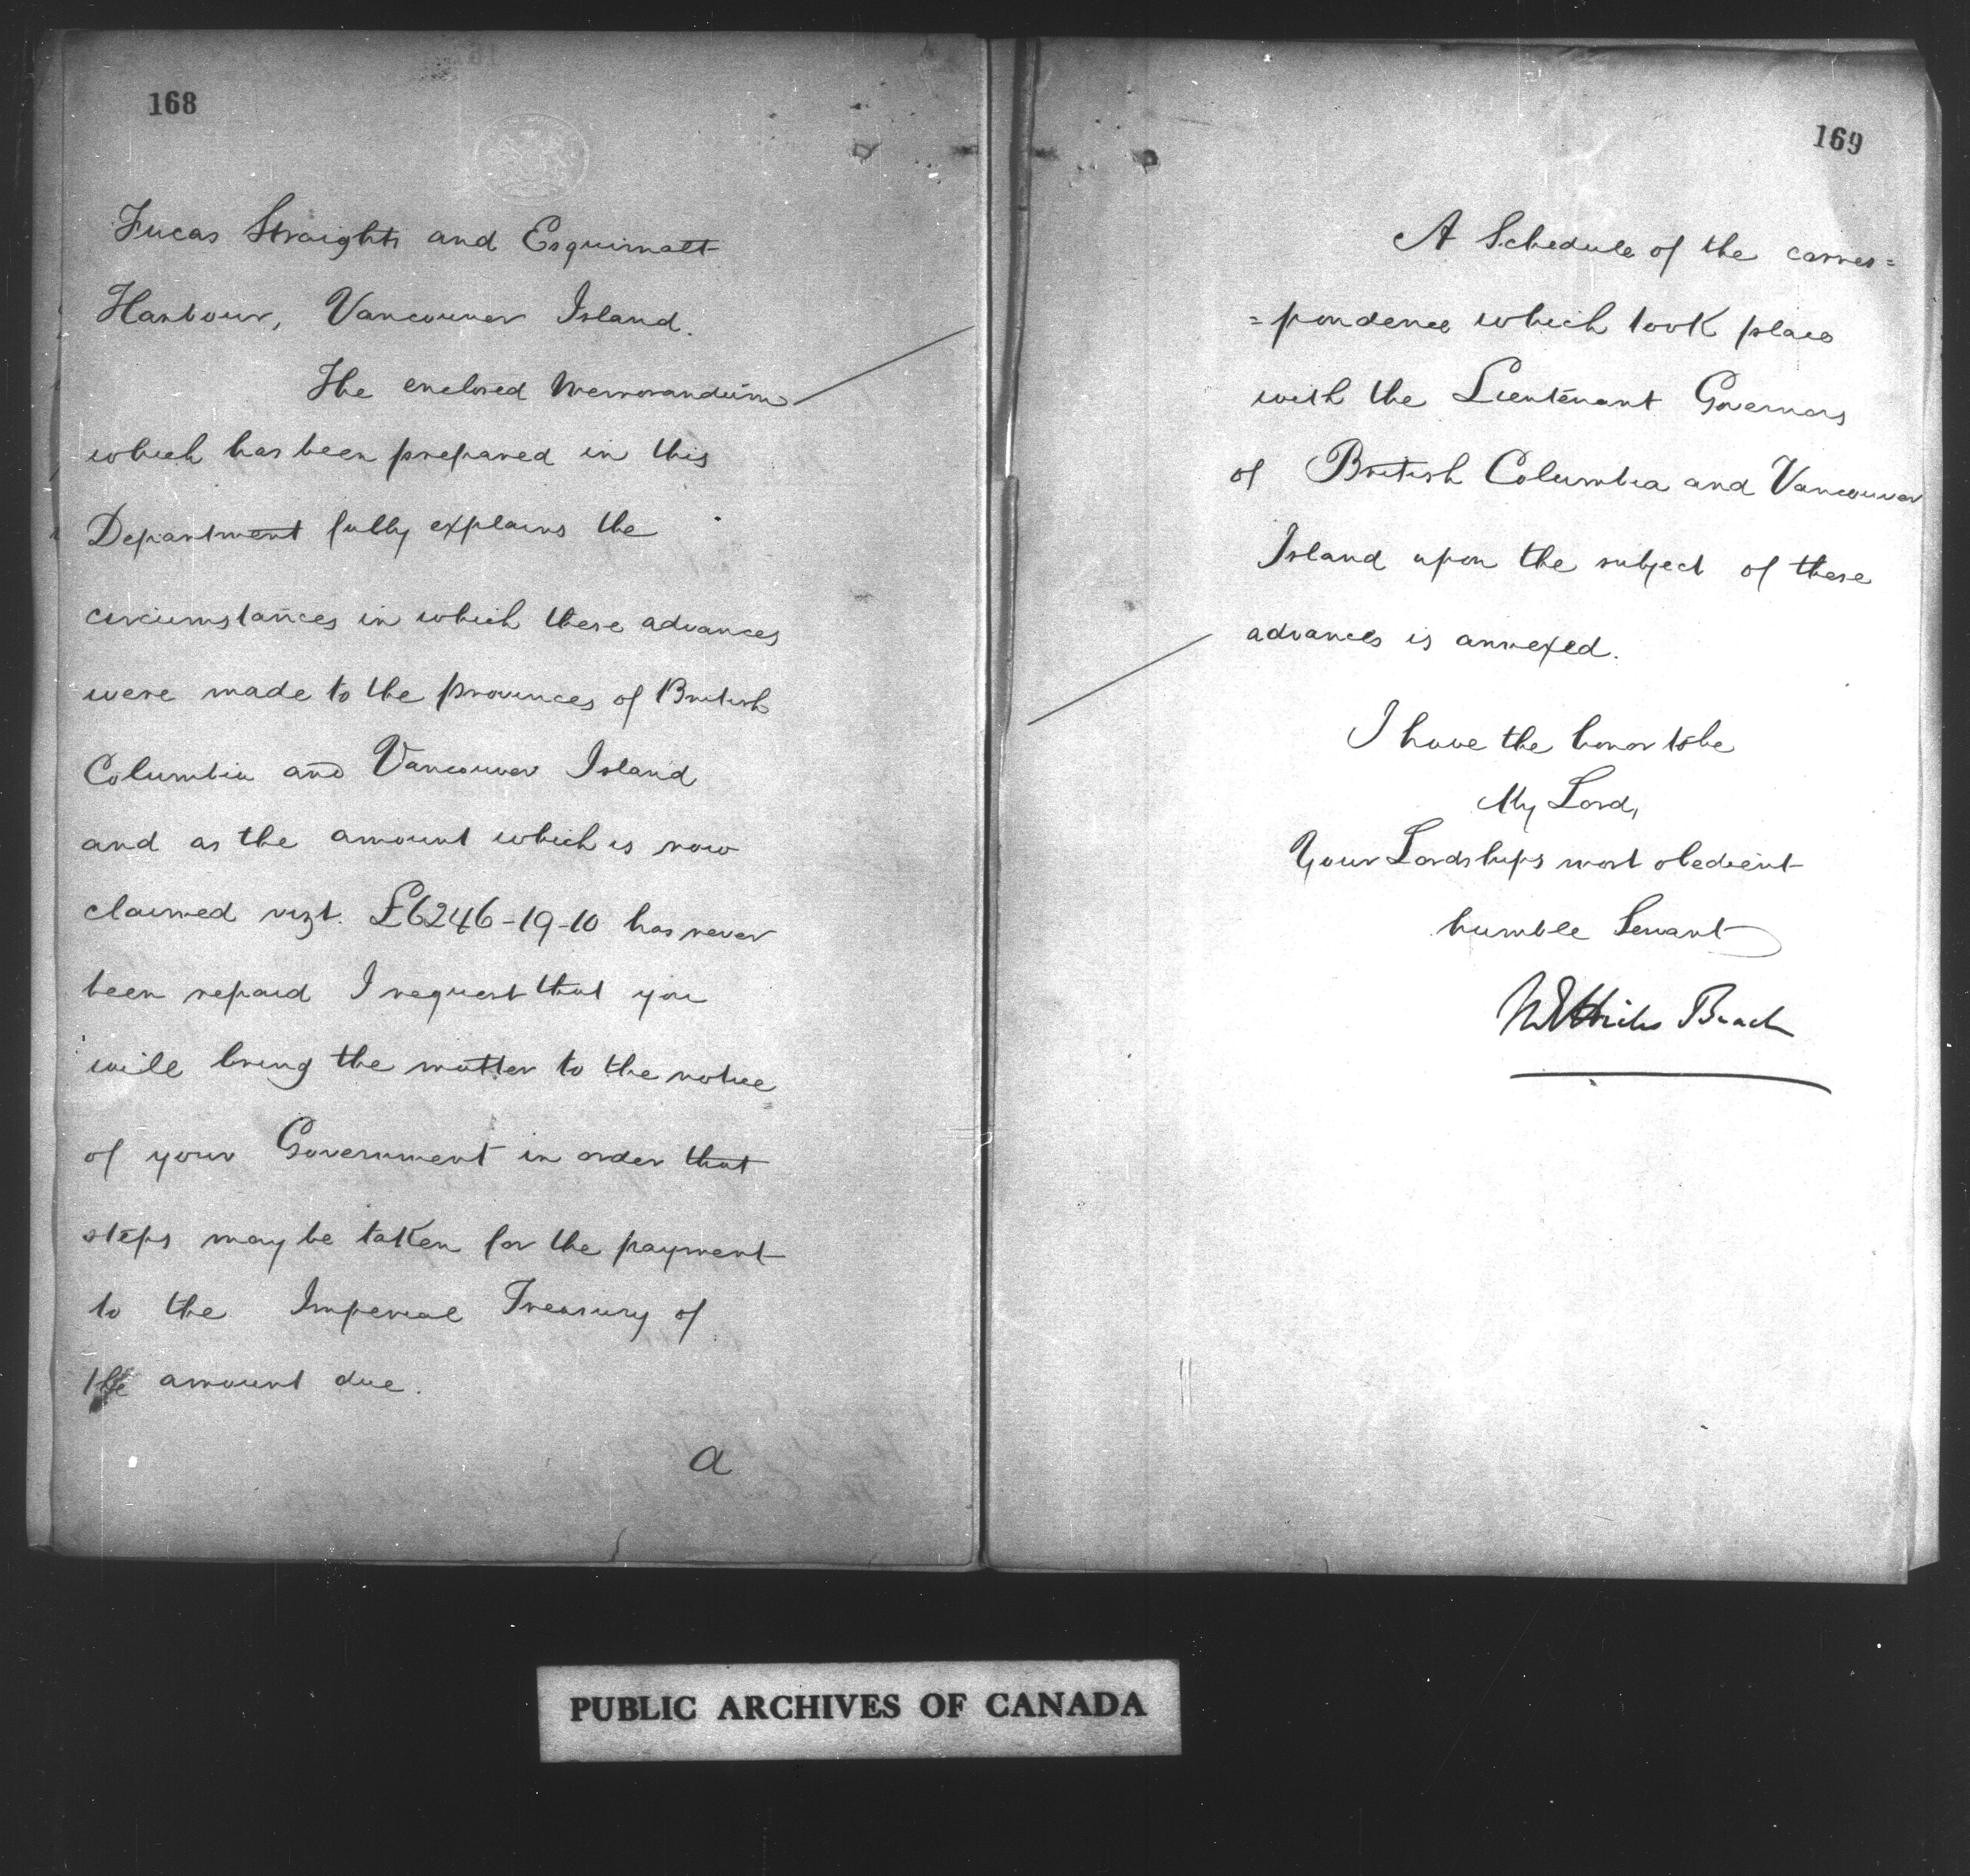 168
Fucas Straights and Esquimalt
Harbour, Vancouver Island.
The enclosed Memorandum
which has been prepared in this
Department fully explains the
circumstances in which these advances
were made to the provinces of British
Columbia and Vancouver Island
and as the amount which is now
claimed vizt. £6246-19-10 has never
been repaid I request that you
will bring the matter to the notice
of your Government in order that
steps may be taken for the payment
to the Imperial Treasury of
the amount due.
A
169
A Schedule of the corres=
=pondence which took place
with the Lieutenant Governors
of British Columbia and Vancouver
Island upon the subject of these
advances is annexed.
I have the honor to be
My Lord,
Your Lordships most obedient
humble Servant
M E Hicks Beach
PUBLIC ARCHIVES OF CANADA